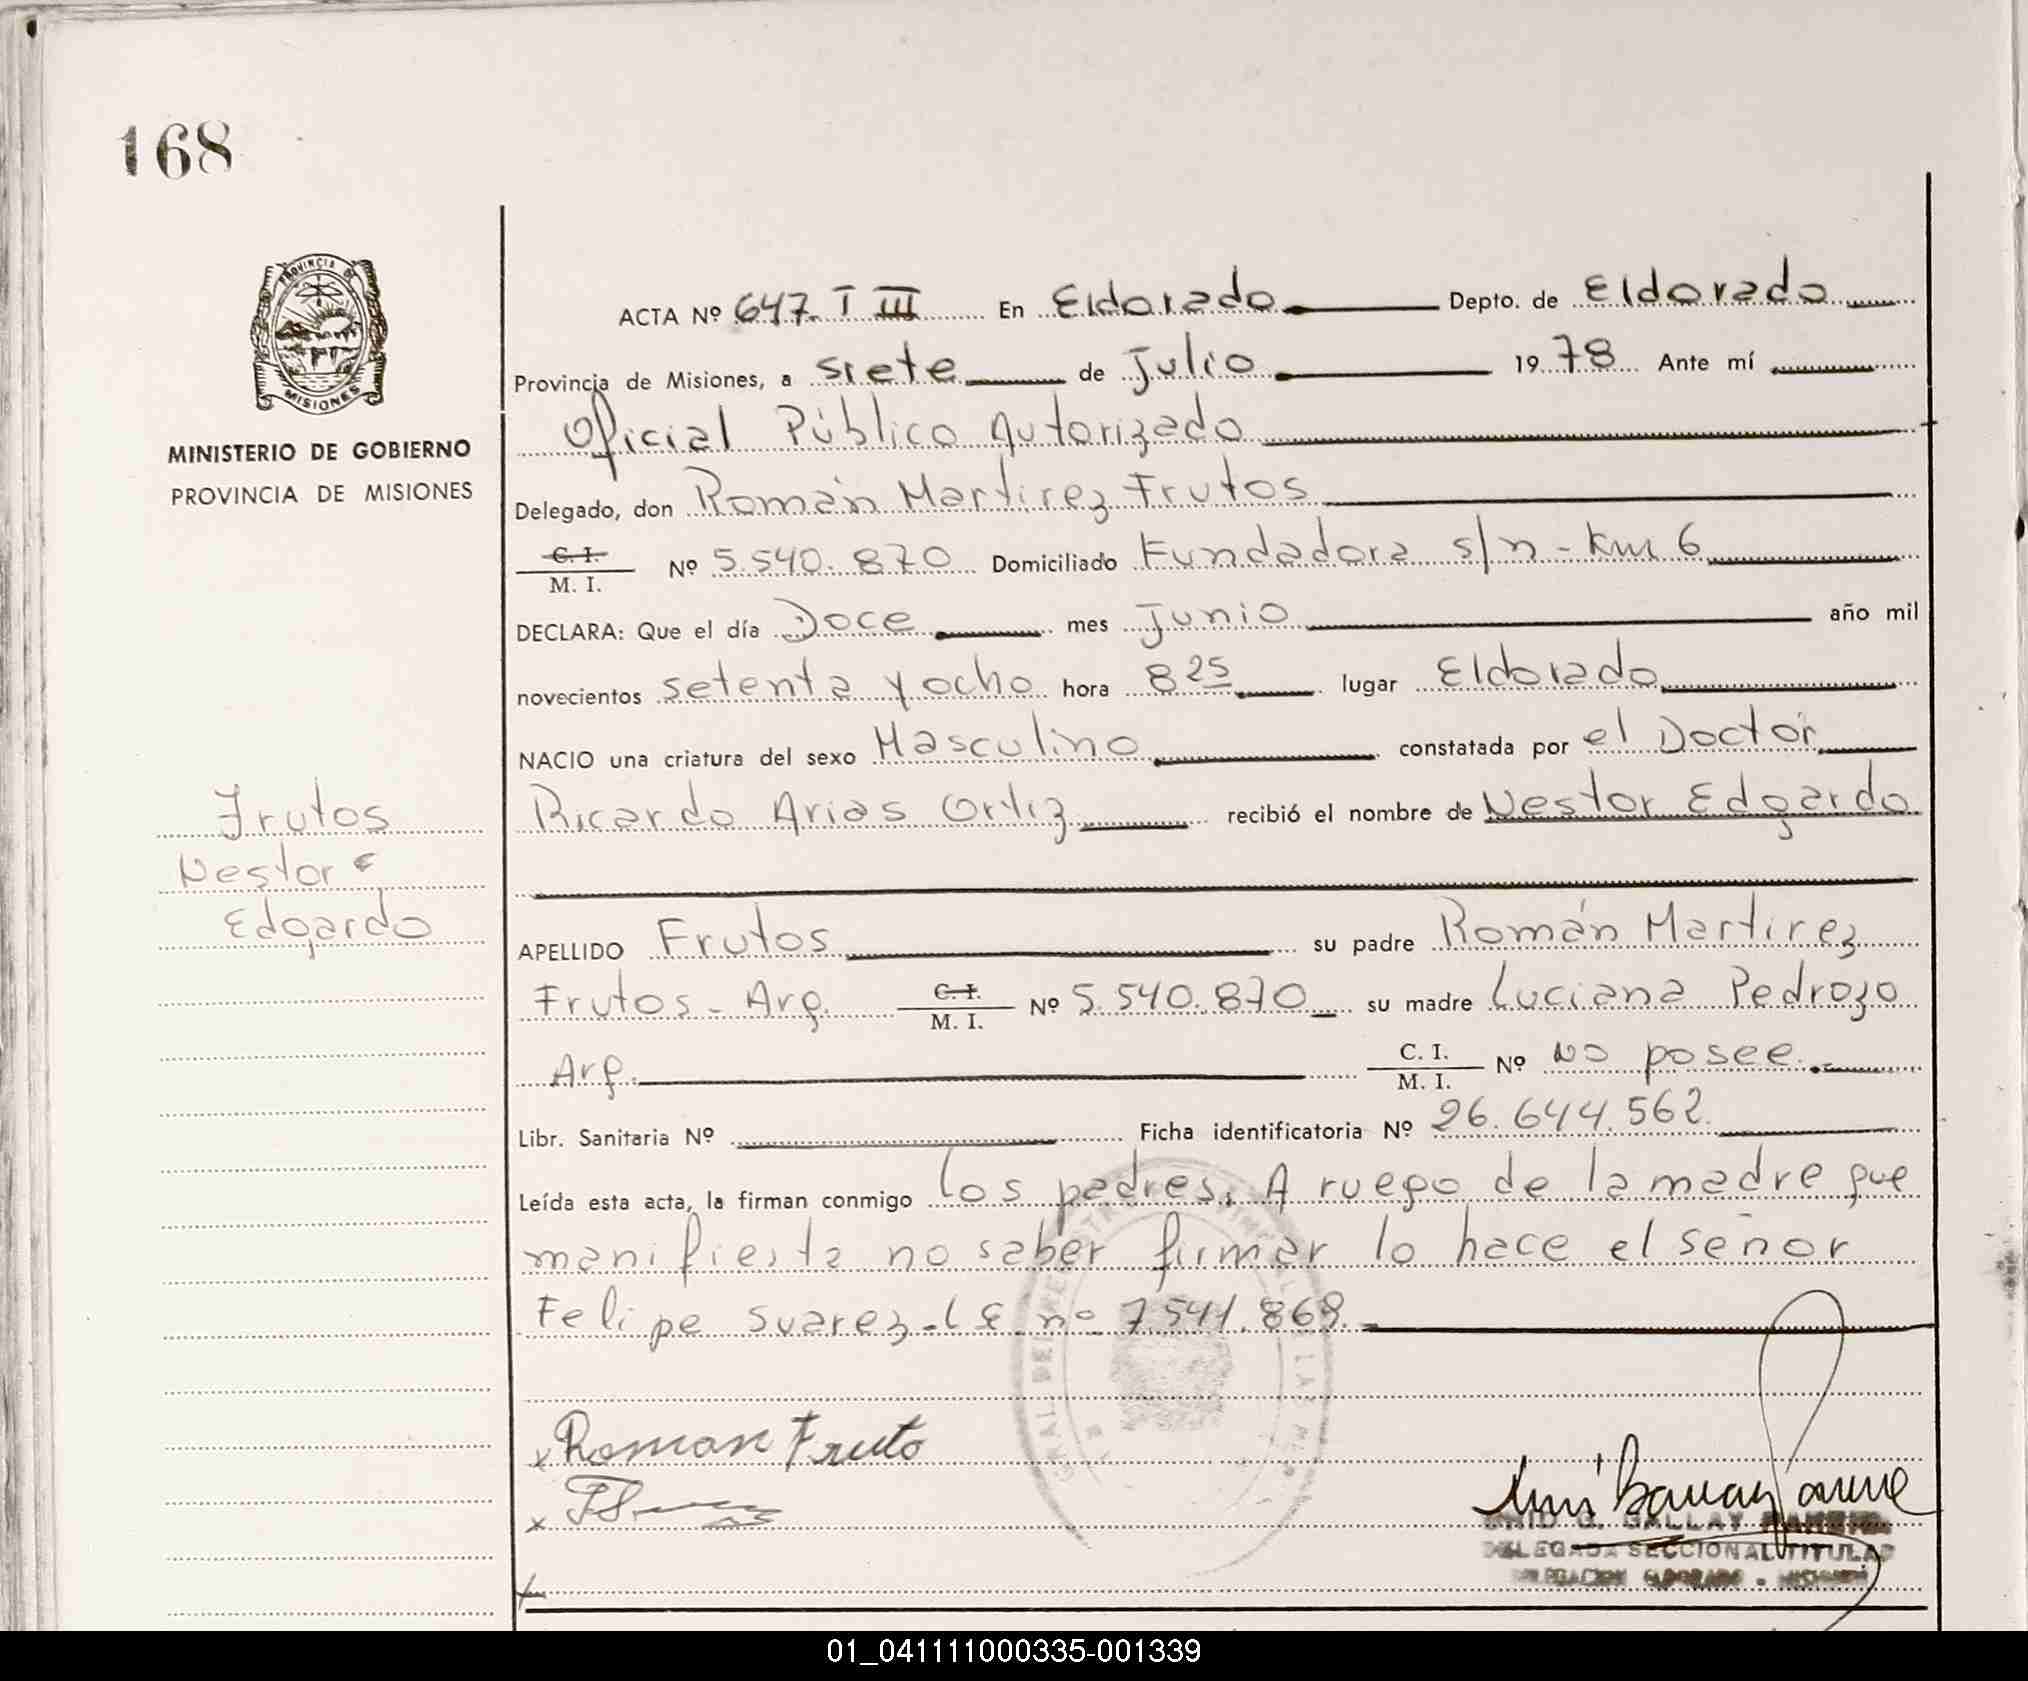 168
PROVINCIA DE
MISIONES
MINISTERIO DE GOBIERNO
PROVINCIA DE MISIONES
ACTA Nº 647. T III En Eldorado Depto. de Eldorado
Provincia de Misiones, a siete de Julio 1978 Ante mí
Oficial Público Autorizado
Delegado, don Román Martirez Frutos
C. I.
M. I. Nº 5.540.870 Domiciliado Fundadora s/n - Km 6
DECLARA: Que el día Doce mes Junio año mil
novecientos setenta y ocho hora 8 25 lugar Eldorado
NACIO una criatura del sexo Masculino constatada por el Doctor
Ricardo Arias Ortiz recibió el nombre de Nestor Edgardo
Frutos
Nestor
Edgardo
APELLIDO Frutos su padre Román Martirez
Frutos - Arg. C. I.
M. I. Nº 5.540.870 su madre Luciana Pedrozo
Arg. C. I.
M. I. Nº No posee.
Libr. Sanitaria Nº Ficha identificatoria Nº 26.644.562.
Leída esta acta, la firman conmigo los padres. A ruego de la madre que
manifiesta no saber firmar lo hace el señor
Felipe Suarez - LE nº 7.541.869.
x Roman Fruto
x
GALLAY
DELEGADA SECCIONAL TITULAR
DELEGACION ELDORADO - MISIONES
01_041111000335-001339